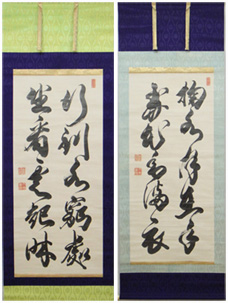 掬水月在手
弄花香満衣
行到水窮處
坐看雲起時